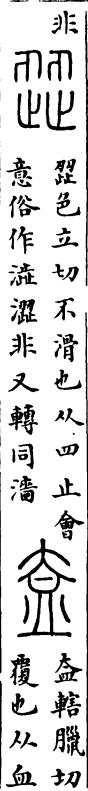 非
歰
歰色立切不滑也从四止會
意俗作澁澀非又轉同濇
盇
盇轄臘切
覆也从血